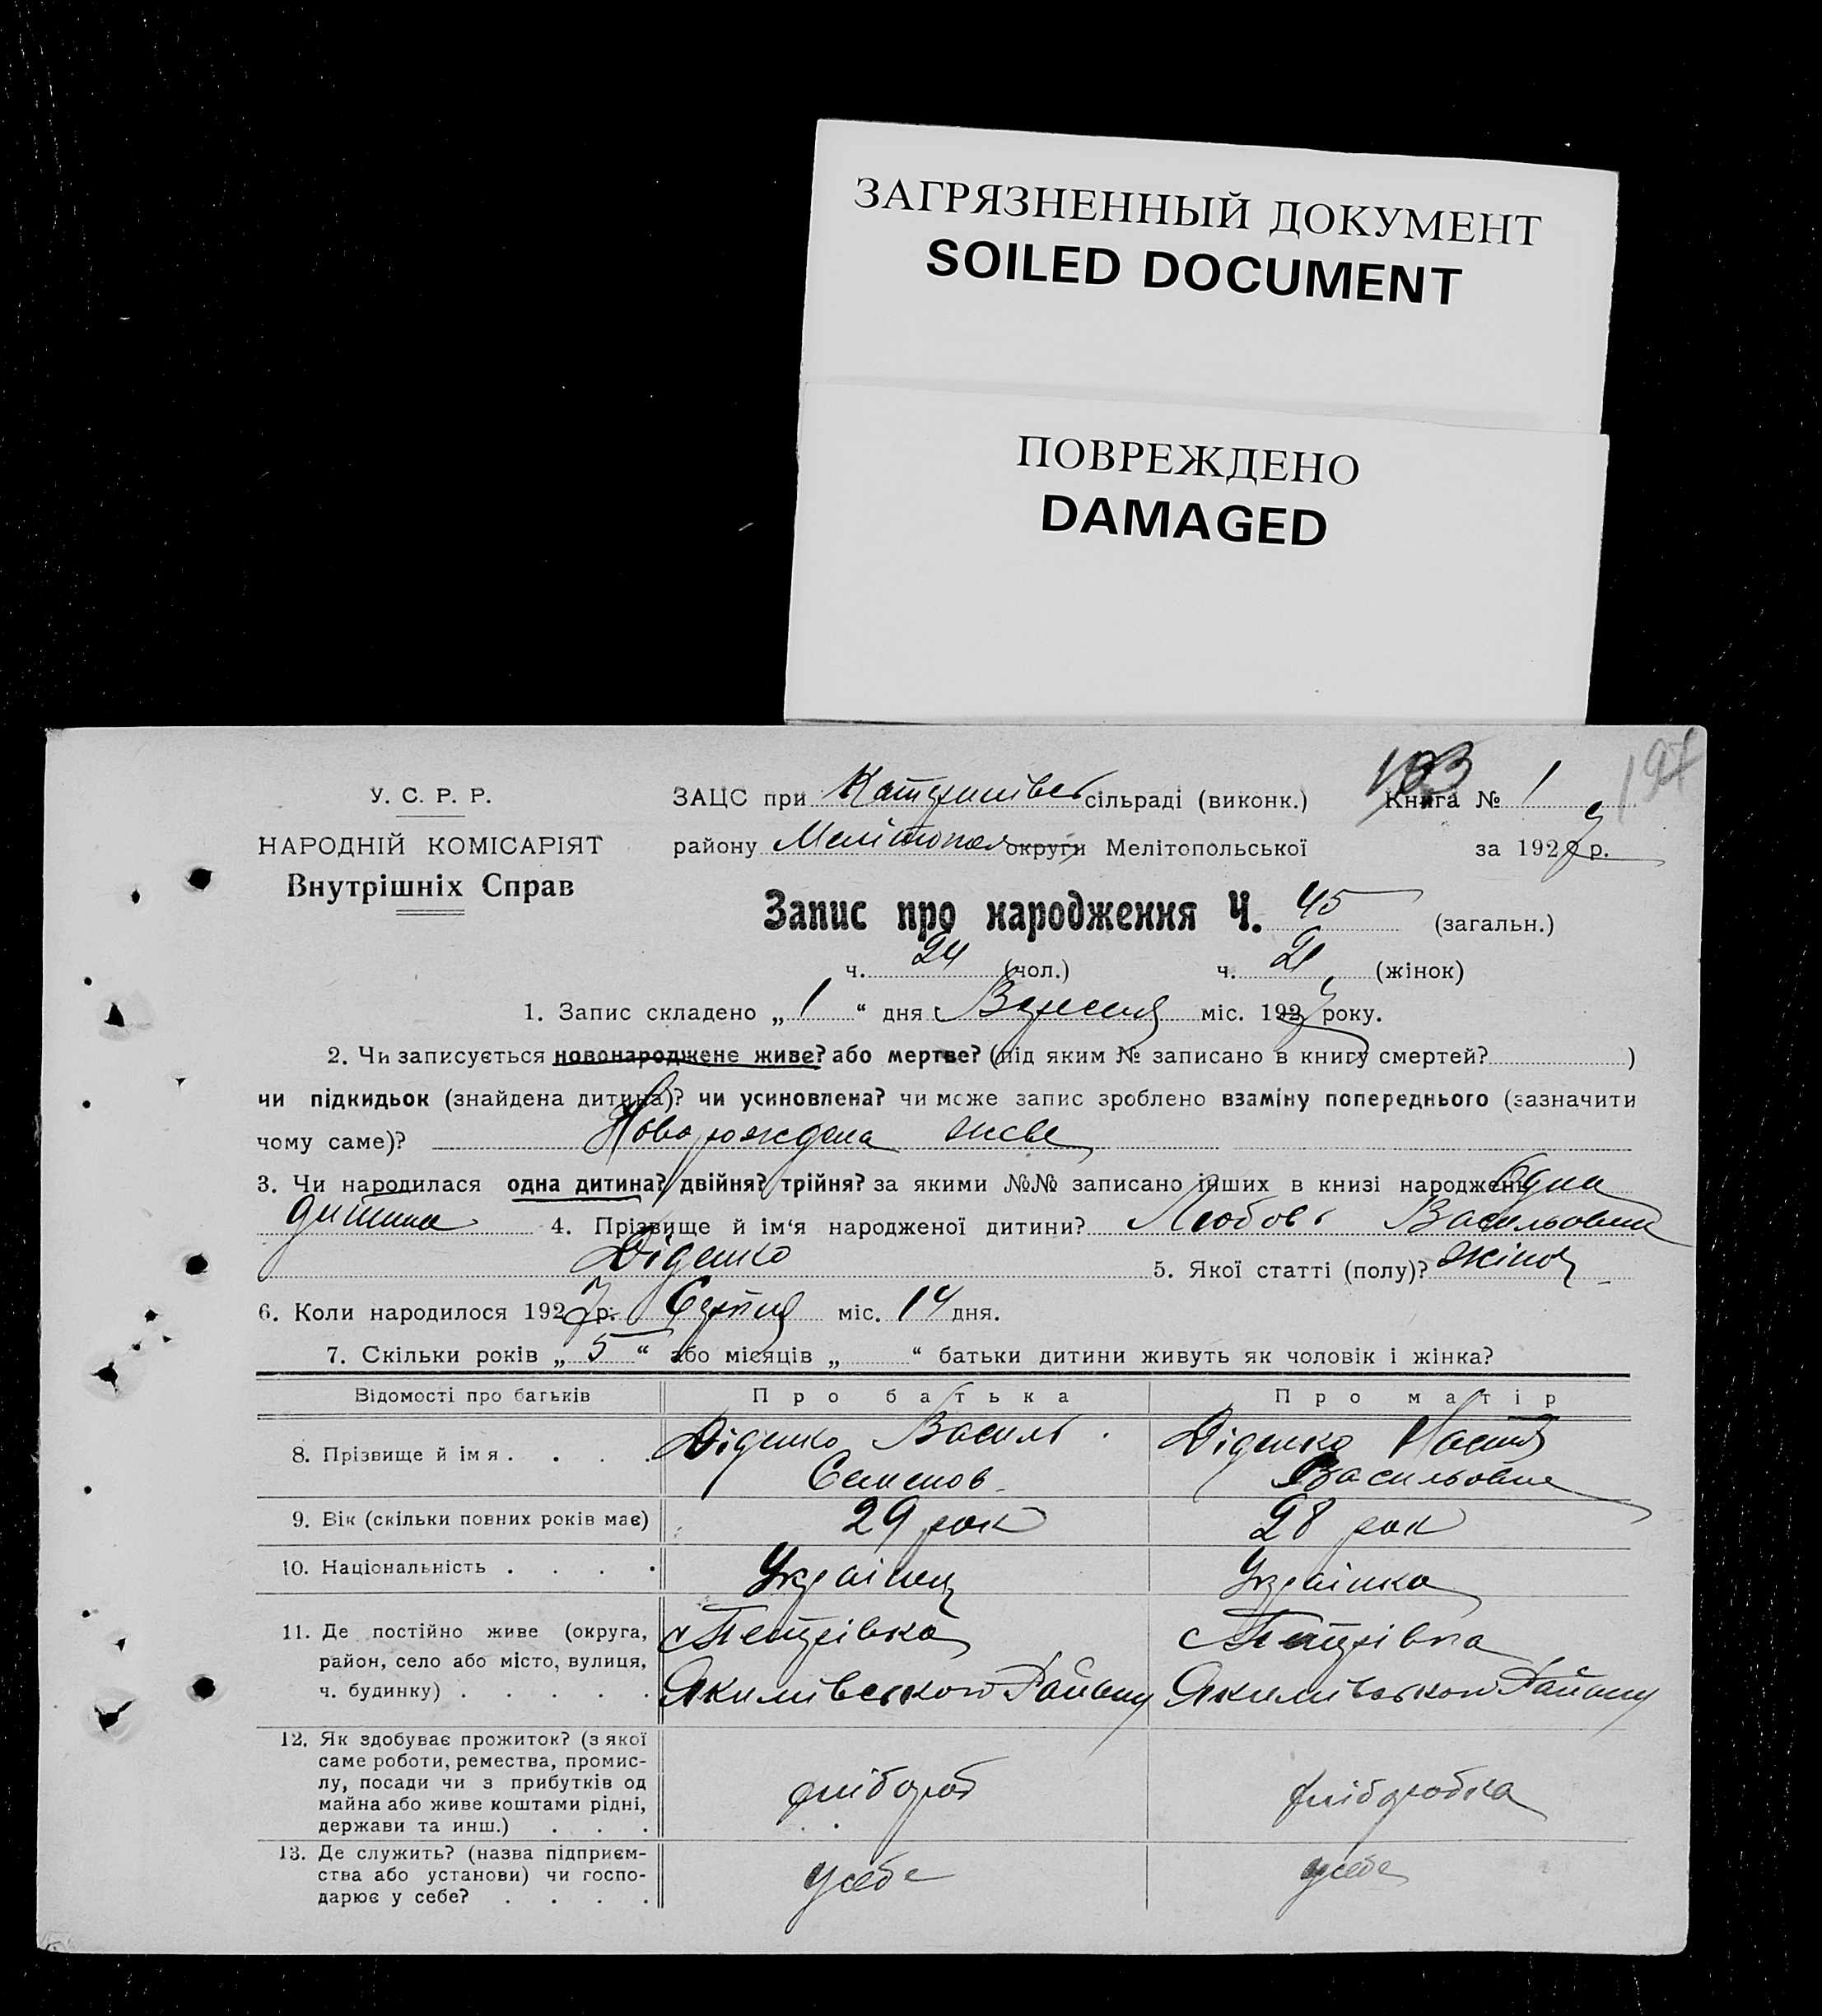 ЗАГРЯЗНЕННЫЙ ДОКУМЕНТ
SOILED DOCUMENT
ПОВРЕЖДЕНО
DAMAGED
103
197
У. С. Р. Р.
НАРОДНІЙ КОМІСАРІЯТ
Внутрішніх Справ
ЗАЦС при Катеринівс сільраді (виконк.) Книга № 1
району Мелітопол округи Мелітопольської за 1927 р.
Запис про народження Ч. 45 (загальн.)
ч. 24 (чол.) ч. 21 (жінок)
1. Запис складено „ 1 “ дня Вересня міс. 1927 року.
2. Чи записується новонароджене живе? або мертве? (під яким № записано в книгу смертей? )
чи підкидьок (знайдена дитина)? чи усиновлена? чи може запис зроблено взаміну попереднього (зазначити
чому саме)? Новорождена живе
3. Чи народилася одна дитина? двійня? трійня? за якими №№ записано інших в книзі народжень Одна
дитина 4. Прізвище й ім‘я народженої дитини? Любовь Васильовна
Діденко 5. Якої статті (полу)? жіноч
6. Коли народилося 1927 р. Серпня міс. 14 дня.
7. Скільки років „ 5 “ або місяців „ “ батьки дитини живуть як чоловік і жінка?
Відомості про батьків Про батька Про матір
8. Прізвище й ім я . . . . Діденко Василь Семенов Діденко Настя Васильовна
9. Вік (скільки повних років має) 29 рок 28 рок
10. Національність . . . . Українец Українка
11. Де постійно живе (округа, с Петрівка с Петрівка
район, село або місто, вулиця,
ч. будинку) . . . . . Якимівського Району Якимівського Району
12. Як здобуває прожиток? (з якої
саме роботи, ремества, промис-
лу, посади чи з прибутків од хлібороб хліборобка
майна або живе коштами рідні,
держави та инш.) . . .
13. Де служить? (назва підприєм-
ства або установи) чи госпо- у себе у себе
дарює у себе? . . . .